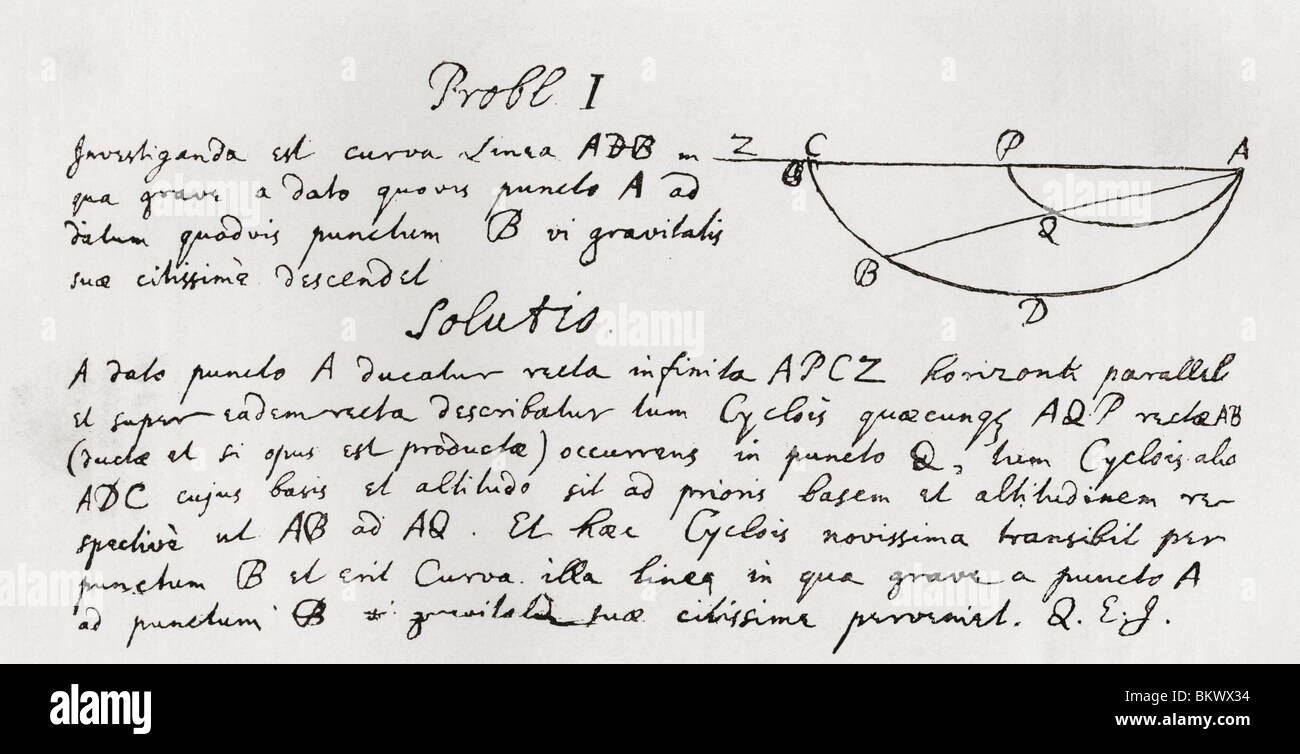 Probl. I
Investiganda est curva Linea ADB in
qua grave a dato quovis puncto A ad
datum quodvis punctum B vi gravitatis
suæ citissimè descendet
Solutio.
A dato puncto A ducatur recta infinita APCZ horizonti parallela
et super eadem recta describatur tum Cyclois quæcunqꝫ AQP rectæ AB
(ductæ et si opus est productæ) occurrens in puncto Q, tum Cyclois alia
ADC cujus basis et altitudo sit ad prioris basem et altitudinem re-
spectivè ut AB ad AQ. Et hæc Cyclois novissima transibit per
punctum B et erit Curva illa linea in qua grave a puncto A
ad punctum B vi gravitatis suæ citissime perveniet. Q. E. I.
Z C P A
Q
B
D
alamy
Image ID: BKWX34
www.alamy.com